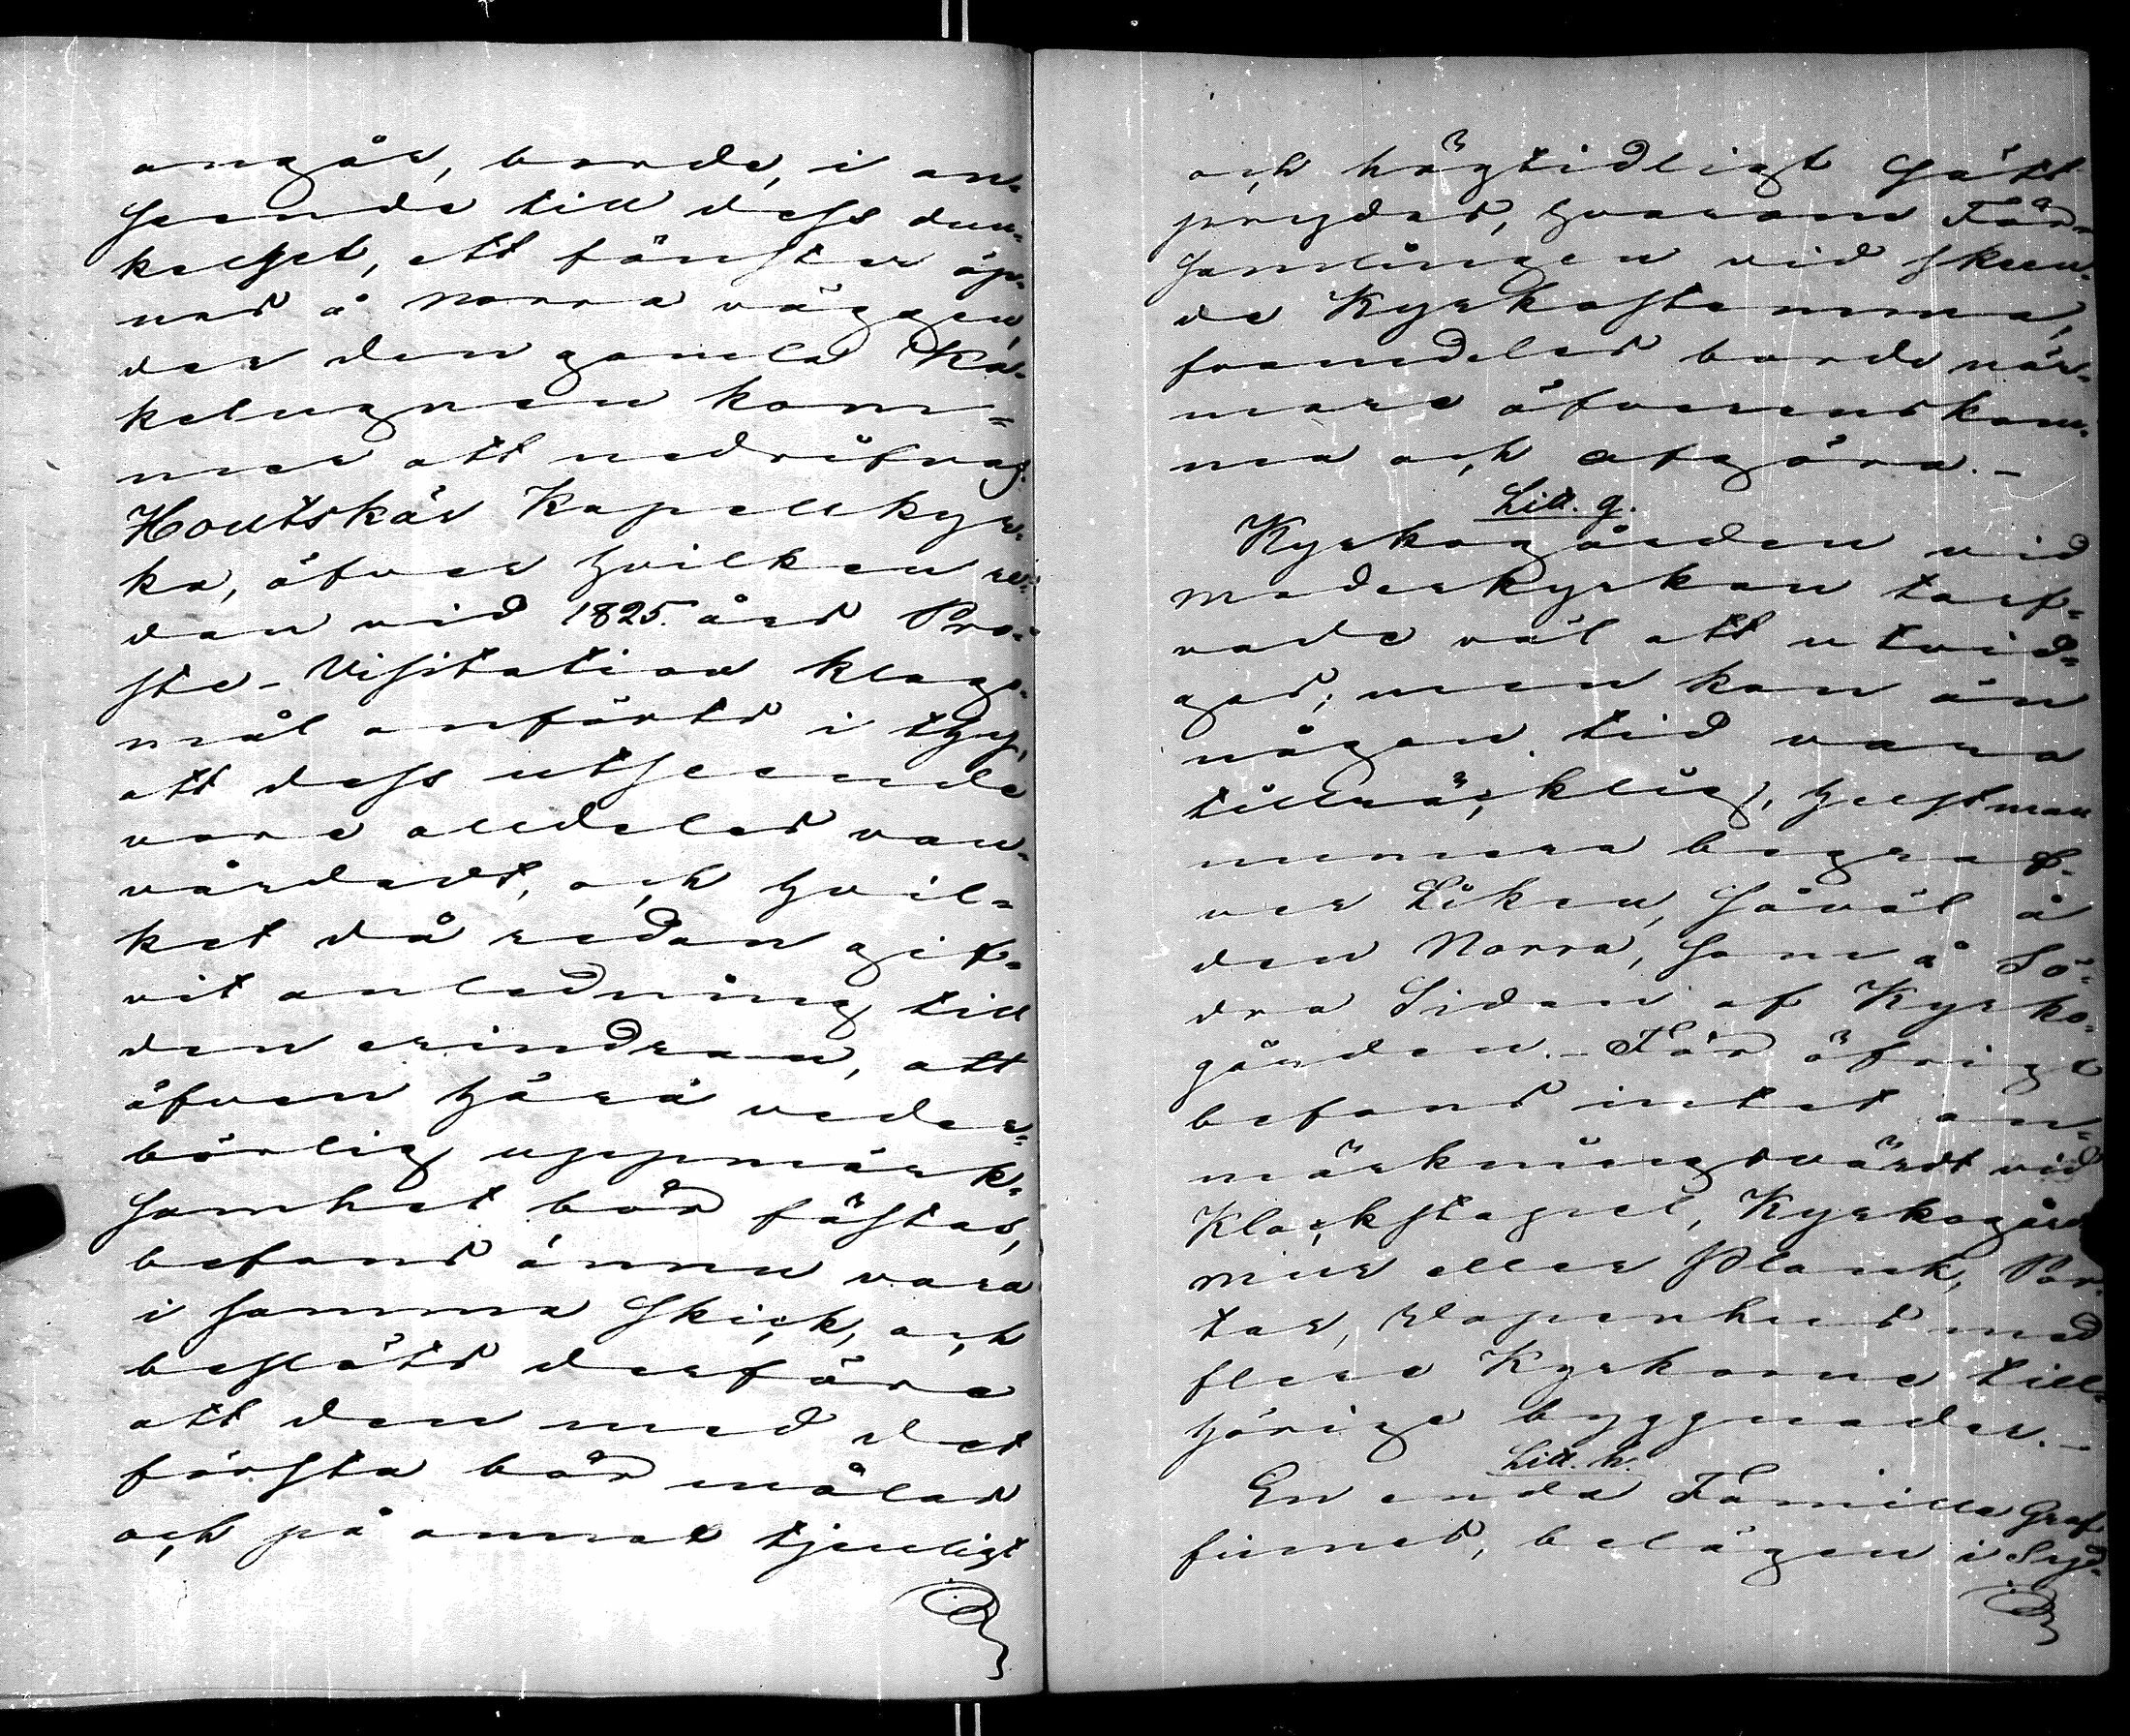 angår, borde, i an-
seende till dess dun-
kelhet, ett fönster öp-
nas å norra väggen,
der den gamla Ka-
kelugnen kom-
mer att nedrifvas.
Houtskär Kapellkyr-
ka, öfver hvilken re-
dan vid 1825. års Pro-
ste-Visitation klago-
mål anförts i thy,
att dess utseende
vore alldeles van-
vårdadt, och hvil-
ket då redan gif-
vit anledning till
den erindran, att
äfven härå veder-
börlig uppmärk-
samhet bör fästas,
befans ännu vara
i samma skick, och
beslöts derföre
att den med det
första bör målas
och på annat tjenligt
och högtidligt sätt
prydas, hvarom För-
samlingen vid skeen-
de Kyrkostemma,
framdeles borde när-
mare öfverenskom-
ma och afgöra.-
Litt. g.
Kyrkogården vid
moderkyrkan torf-
vade väl att utvid-
gas; men kan än
någon tid vara
tillräcklig, helst man
numera begraf-
ver Liken, såväl å
den Norra, som å Sö-
dra Sidan af Kyrko-
gården.- För öfrigt
befans intet an-
märkningsvärdt vid
Klockstapel, Kyrkogårds
mur eller Plank, Por-
tar, Vapenhus med
flere Kyrkorne till-
hörige byggnader.-
Litt. h.
En enda Familie Graf
finnes, belägen i Syd-